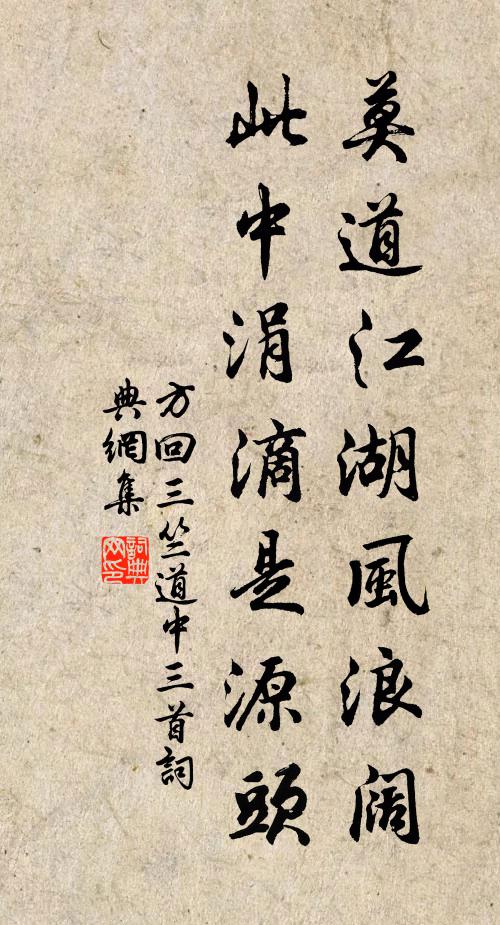 莫道江湖風浪闊
此中涓滴是源頭
方回三竺道中三首詞
典網集
詞典网印